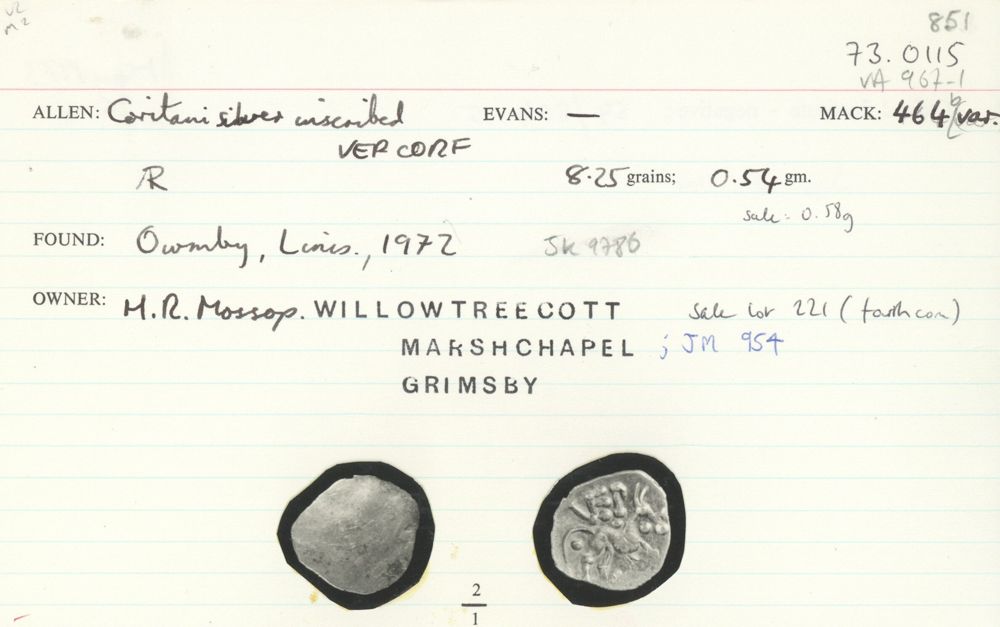 V2
M2
851
73.0115
VA 967-1
ALLEN: Coritani silver inscribed EVANS: — MACK: 464b var.
VEP CORF
AR 8.25 grains; 0.54 gm.
sale: 0.58g
FOUND: Owmby, Lincs., 1972 SK 9786
OWNER: H.R. Mossop. WILLOWTREECOTT sale lot 221 (fourth coin)
MARSHCHAPEL ; JM 954
GRIMSBY
VEP
2
1